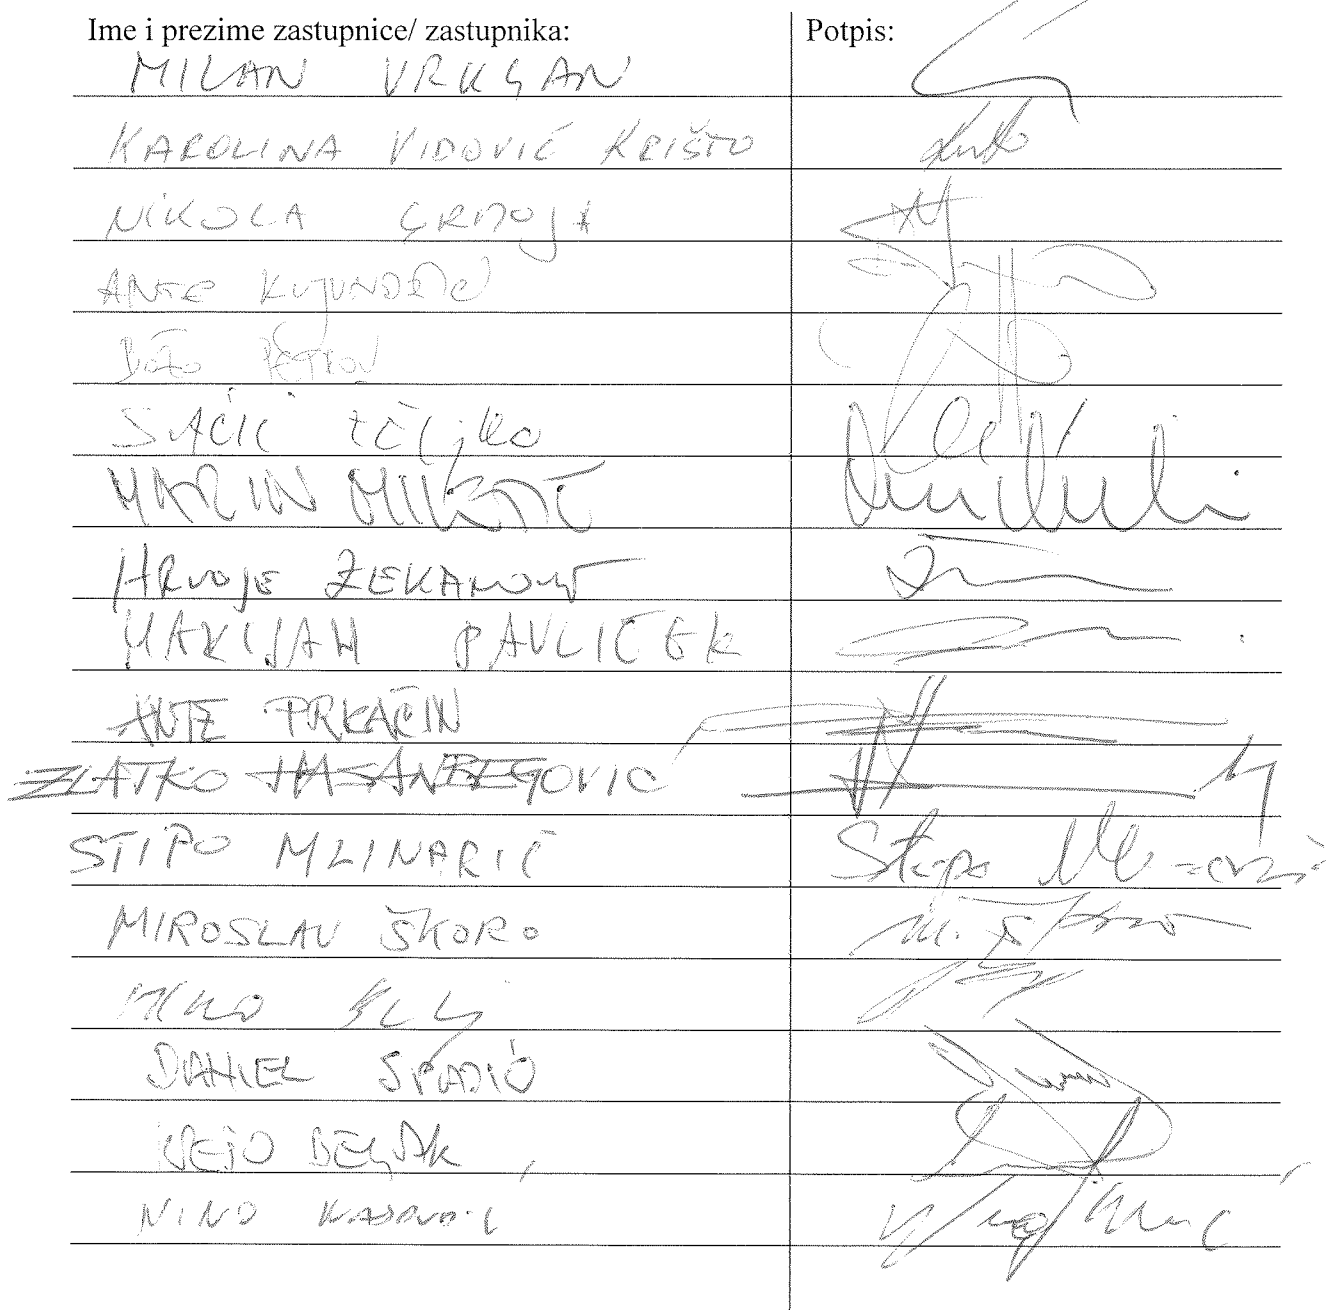 Ime i prezime zastupnice/ zastupnika: Potpis:
MILAN VRKLJAN
KAROLINA VIDOVIĆ KRIŠTO
NIKOLA GRMOJA
ANTE KUJUNDŽIĆ
BOŽO PETROV
SAČIĆ ŽELJKO
MARIN MILETIĆ
HRVOJE ZEKANOVIĆ
MARIJAN PAVLIČEK
ANTE PRKAČIN
ZLATKO HASANBEGOVIĆ
STIPO MLINARIĆ Stipo Mlinarić
MIROSLAV ŠKORO M. Škoro
MIRO BULJ
DANIEL SPAJIĆ
KREŠO BELJAK
NINO RASPUDIĆ